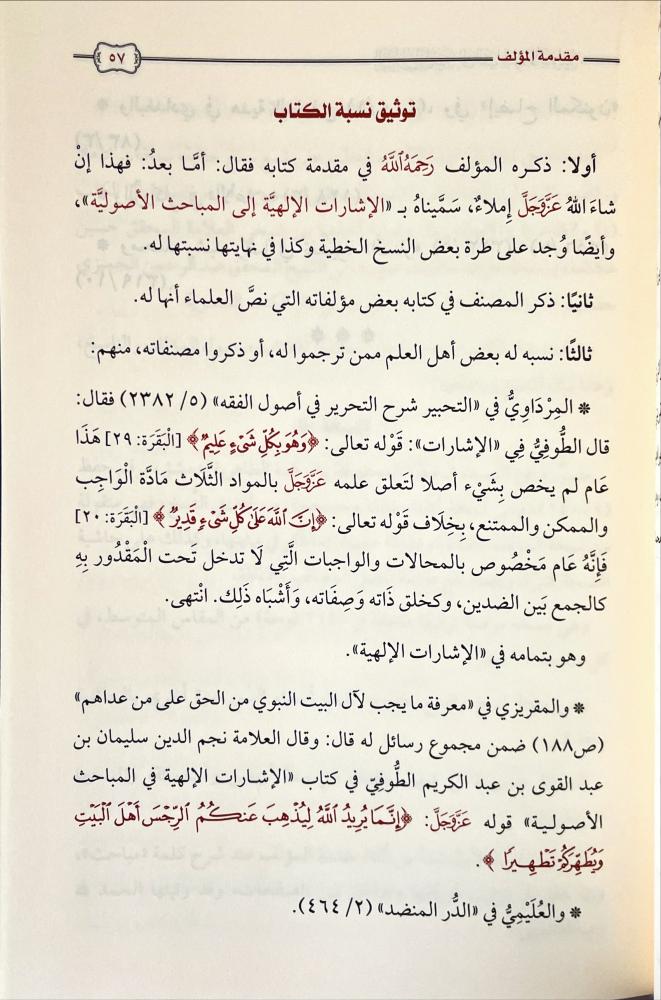 مقدمة المؤلف
٥٧
توثيق نسبة الكتاب
أولا: ذكره المؤلف رَحِمَهُ اللَّهُ في مقدمة كتابه فقال: أمَّا بعدُ: فهذا إنْ
شاءَ اللهُ عَزَّوَجَلَّ إملاءٌ، سَمَّيناهُ بـ «الإشارات الإلهيَّة إلى المباحث الأصوليَّة»،
وأيضًا وُجد على طرة بعض النسخ الخطية وكذا في نهايتها نسبتها له.
ثانيًا: ذكر المصنف في كتابه بعض مؤلفاته التي نصَّ العلماء أنها له.
ثالثًا: نسبه له بعض أهل العلم ممن ترجموا له، أو ذكروا مصنفاته، منهم:
* المِرْدَاوِيُّ في «التحبير شرح التحرير في أصول الفقه» (٥/ ٢٣٨٢) فقال:
قال الطُّوفِيُّ فِي «الإشارات»: قَوْله تعالى: ﴿وَهُوَ بِكُلِّ شَىْءٍ عَلِيمٌ﴾ [الْبَقَرَة: ٢٩] هَذَا
عَام لم يخص بِشَيْء أصلا لتَعلق علمه عَزَّوَجَلَّ بالمواد الثَّلَاث مَادَّة الْوَاجِب
والممكن والممتنع، بِخِلَاف قَوْله تعالى: ﴿إِنَّ اللَّهَ عَلَىٰ كُلِّ شَىْءٍ قَدِيرٌ﴾ [الْبَقَرَة: ٢٠]
فَإِنَّهُ عَام مَخْصُوص بالمحالات والواجبات الَّتِي لَا تدخل تَحت الْمَقْدُور بِهِ
كالجمع بَين الضدين، وكخلق ذَاته وَصِفَاته، وَأَشْبَاه ذَلِك. انْتهى.
وهو بتمامه في «الإشارات الإلهية».
* والمقريزي في «معرفة ما يجب لآل البيت النبوي من الحق على من عداهم»
(ص١٨٨) ضمن مجموع رسائل له قال: وقال العلامة نجم الدين سليمان بن
عبد القوى بن عبد الكريم الطُّوفِيّ في كتاب «الإشارات الإلهية في المباحث
الأصولية» قوله عَزَّوَجَلَّ: ﴿إِنَّمَا يُرِيدُ اللَّهُ لِيُذْهِبَ عَنكُمُ الرِّجْسَ أَهْلَ الْبَيْتِ
وَيُطَهِّرَكُمْ تَطْهِيرًا﴾.
* والعُلَيْمِيُّ في «الدُّر المنضد» (٢/ ٤٦٤).